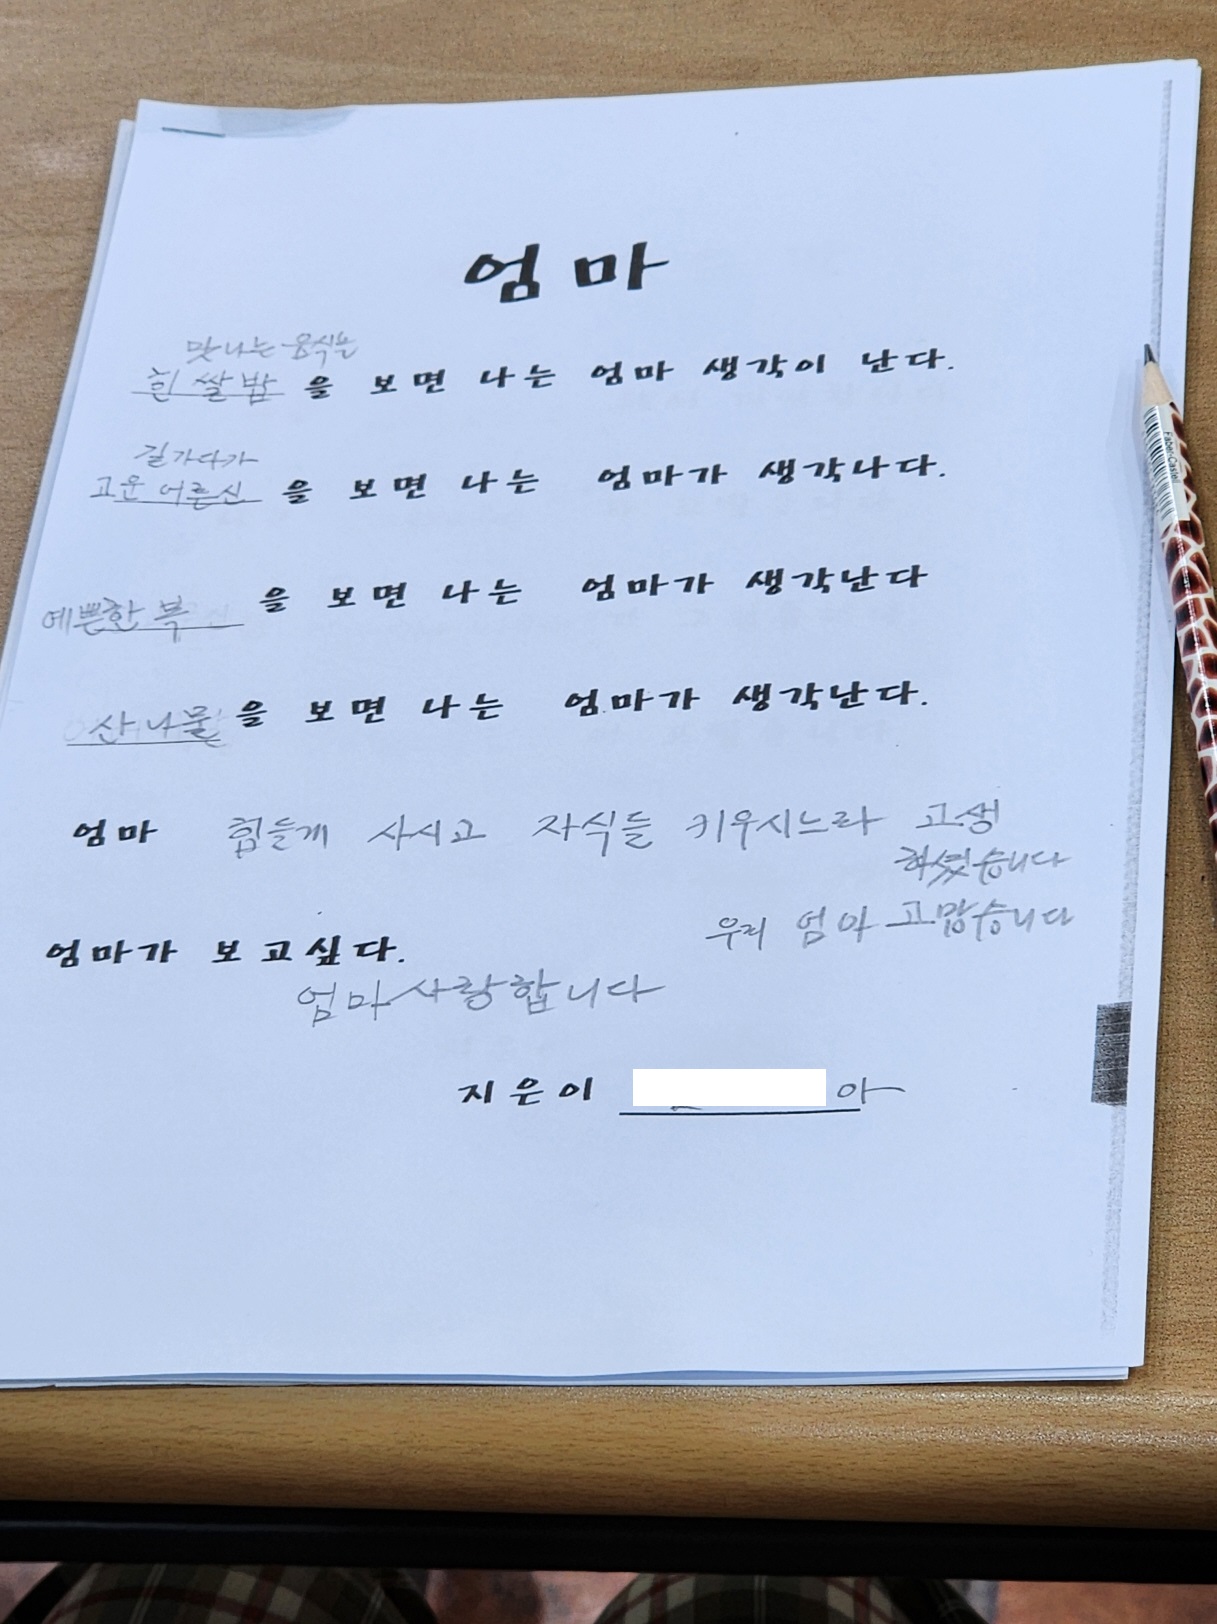 엄마
맛나는 음식는
흰 쌀밥을 보면 나는 엄마 생각이 난다.
길가다가
고운 어른신을 보면 나는 엄마가 생각나다.
예쁜한복을 보면 나는 엄마가 생각난다
산나물을 보면 나는 엄마가 생각난다.
엄마 힘들게 사시고 자식들 키우시느라 고생
하셨습니다
우리 엄마 고맙습니다
엄마가 보고싶다.
엄마 사랑합니다
지은이 아
Faber-Castell